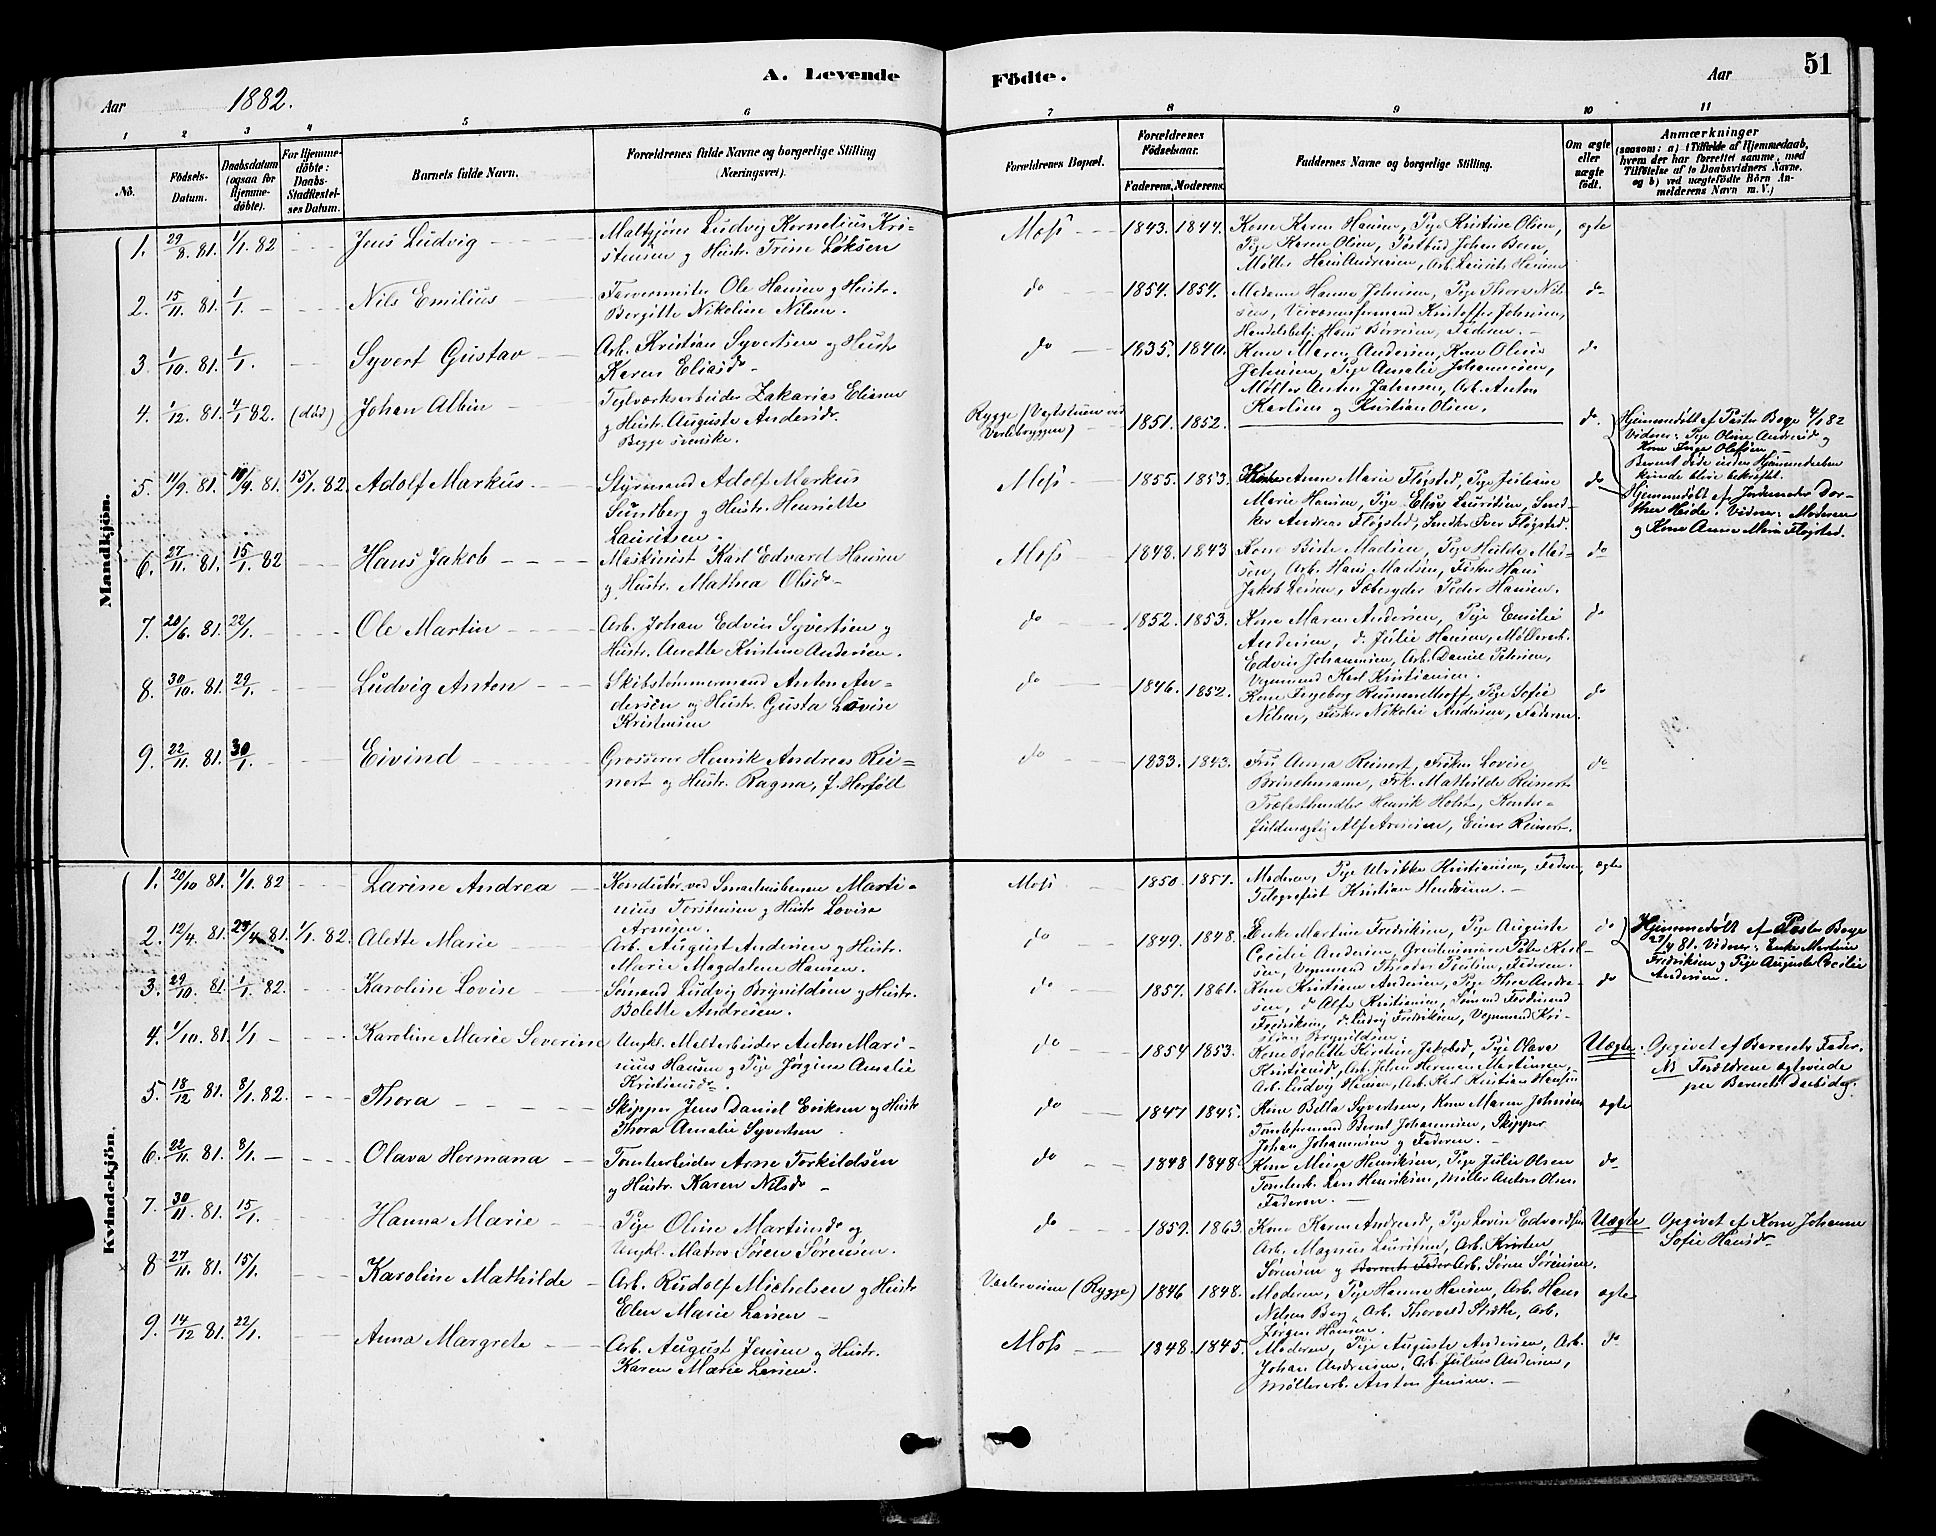 A. Levende Födte.
51
Aar 1882.
Aar
1 2 3 4 5 6 7 8 9 10 11
No.
Födsels-Datum.
Daabsdatum (ogsaa for Hjemme-döbte).
For Hjemme-döbte: Daabs-Stadfæstel-ses Datum.
Barnets fulde Navn.
Forældrenes fulde Navne og borgerlige Stilling (Næringsvei).
Forældrenes Bopæl.
Forældrenes Födselsaar.
Faderens. Moderens.
Faddernes Navne og borgerlige Stilling.
Om ægte eller uægte födt.
Anmærkninger
(saasom: a) i Tilfælde af Hjemmedaab, hvem der har forrettet samme, med Tilföielse af to Daabsvidners Navne, og b) ved uægtefödte Börn An-melderens Navn m. V.)
Mandkjön.
1. 29/8. 81. 1/1. 82 Jens Ludvig
Ludvig Kornelius Kri-
stensen g Hustr. Trine Løksen
Moss 1843. 1844.
Kone Karen Hansen, Pige Kristine Olsen,
Pige Karen Olsen, Postbud Johan Been,
Møller Hans Andresen, Arb. Laurits Hansen
ægte
2. 15/11. 81. 1/1. Nils Emilius
Farvermester Ole Hansen g Hustr.
Bergitte Nikoline Nilsen.
do 1854. 1854.
Madame Hanna Johnsen, Pige Thora Nil-
sen, Kristoffer Johnsen,
Handelsbetj. Hans Børresen, Faderen.
do
3. 1/10. 81. 1/1. Syvert Gustav
Arb. Kristian Syvertsen og Hustr
Karen Eliasd.
do 1835. 1840.
Kone Maren Andersen, Kone Oline
Johnsen, Pige Amalie Johannesen,
Møller Anton Jahnsen, Arb. Anton
Karlsen og Kristian Olsen.
do
4. 1/12. 81. 4/1. 82. (död) Johan Albin
Teglværksarbeider Zakarias Eliasen
g Hustr. Augusta Andersdr.
Begge svenske.
Rygge (Vagtstuen ved
Værlebryggen) 1851. 1852.
do.
Hjemmedøbt af Pastor Berge 4/1 82
Vidner: Pige Oline Andersd. g
Kone Inge Olefsen
Barnet døde inden Hjemmedaaben
kunde blive bekræftet.
5. 11/9. 81. 18/9. 81. 15/1. 82. Adolf Markus
Styrmand Adolf Markus
Sundberg g Hustr. Henriette
Lauritsen.
Moss 1855. 1853.
Kone Anne Marie Flogsted, Pige Juliane
Marie Hansen, Pige Elise Lauritsen, Sned-
ker Andreas Flogsted, Snedker Iver Flogsted.
do
Hjemmedøbt af Jordemoder Dor-
thea Heide. Vidner: Moderen
g Kone Anne Marie Flogsted.
6. 27/11. 81. 15/1. 82 Hans Jakob
Maskinist Karl Edvard Hansen
g Hustr. Mathea Olsd.
Moss 1848. 1843
Kone Berte Madsen, Pige Hulda Mad-
sen, Arb. Hans Madsen, Fisker Hans
Jakob Larsen, Sæbesyder Peder Hansen.
do
7. 20/6. 81. 22/1. Ole Martin
Arb. Johan Edvin Syvertsen g
Hustr. Anette Kristine Andersen.
do 1852. 1853.
Kone Maren Andersen, Pige Emilie
Andersen, d. Julie Hansen, Møllerarb.
Edvin Johannesen, Arb. Daniel Petersen,
Vognmand Karl Kristiansen.
do
8. 30/10. 81. 29/1. Ludvig Anton
Skibstømmermand Anton An-
dersen og Hustr. Gusta Lovise
Kristensen
do 1846. 1852.
Kone Ingeborg Rummelhoff, Pige Sofie
Nilsen, Fisker Nikolai Andersen, Faderen.
do
9. 22/11. 81. 30/1. Eivind
Grosserer Henrik Andreas Rei-
nert og Hustr. Ragna, f. Herføll
do 1833. 1843.
Fru Anna Reinert, Frøken Lovise
Brinchmann, Frk. Mathilde Reinert
Trælasthandler Henrik Holst, Kontor-
fuldmægtig Alf Arnesen, Einar Reinert.
do
Kvindekjön.
1. 20/10 81. 1/1. 82 Larine Andrea
Konduktør ved Smaalensbanen Marti-
nius Torstensen g Hustr Lovise
Arnesen.
Moss. 1850. 1857.
Moderen, Pige Ulrikke Kristiansen, Faderen,
Telegrafist Kristian Hendriksen.
ægte
2. 12/4. 81. 27/4. 81. 1/1. 82. Alette Marie
Arb. August Andersen g Hustr.
Marie Magdalene Hansen.
do 1849. 1848.
Enke Martine Fredriksen, Pige Auguste
Cecilie Andersen, Peter Karl-
sen, Vognmand Theodor Paulsen, Faderen.
do
Hjemmedøbt af Pastor Berge
27/4 81. Vidner: Enke Martine
Fredriksen g Pige Auguste Cecilie
Andersen.
3. 29/10. 81. 1/1. 82. Karoline Lovise
Sømand Ludvig Brynildsen g Hustr.
Bolette Andresen.
do 1857. 1861.
Kone Kristiane Andersen, Pige Andre-
sen, d. Alfa Kristiansen, Sømand Ferdinand
Fredriksen, d. Ludvig Fredriksen, Vognmand Kri-
stian Brynildsen.
do
4. 1/10. 81. 1/1. Karoline Marie Severine
Ungkl. Maltarbeider Anton Mari-
nius Hansen g Pige Jørgine Amalie
Kristiansd.
do 1854 1853.
Kone Bolette Kirstine Jakobsd, Pige Olava
Kristiansd, Arb. Johan Herman Martinsen,
Arb. Ludvig Hansen, Arb. Karl Kristian Hansen
Uægte.
Opgivet af Barnets Fader.
NB Forældrene ægteviede
paa Barnets Daabsdag.
5. 18/12 81. 8/1. 82. Thora
Skipper Jens Daniel Eriksen og Hustr
Thora Amalie Syvertsen.
do 1847 1845.
Kone Bella Syvertsen, Kone Maren Johnsen
Tomteformand Bernt Johannesen, Skipper
Johan Johannesen g Faderen.
ægte
6. 22/11 81. 8/1. Olava Hermana
Tomtearbeider Arne Torkildsen
g Hustr. Karen Nilsd.
do 1848 1848.
Kone Mina Henriksen, Pige Julie Olsen
Tomtearb. Lars Henriksen, Møller Anton Olsen
Faderen.
do
7. 30/11. 81. 15/1. Hanna Marie
Pige Oline Martinsd. og
Ungkl. Matros Søren Sørensen.
do 1859. 1863.
Kone Karen Andreasd, Pige Lovise Edvardsen
Arb. Magnus Lauritsen, Arb. Kristen
Sørensen og Barnets Fader Arb. Søren Sørensen.
Uægte
Opgivet af Kone Johanne
Sofie Hansd.
8 27/11. 81. 15/1. Karoline Mathilde
Arb. Rudolf Michelsen g Hustr
Elen Marie Larsen
Vaalerveien (Rygge) 1846 1848.
Moderen, Pige Hanna Hansen, Arb. Hans
Nilsen Berg, Arb. Thorvald, Arb.
Jørgen Hansen.
ægte
9. 14/12 81. 22/1. Anna Margrete
Arb. August Jensen g Hustr.
Karen Marie Larsen.
Moss 1848. 1845.
Moderen, Pige Auguste Andersen, Arb.
Johan Andresen, Arb. Julius Andersen,
Møllerarb. Anton Jensen.
do